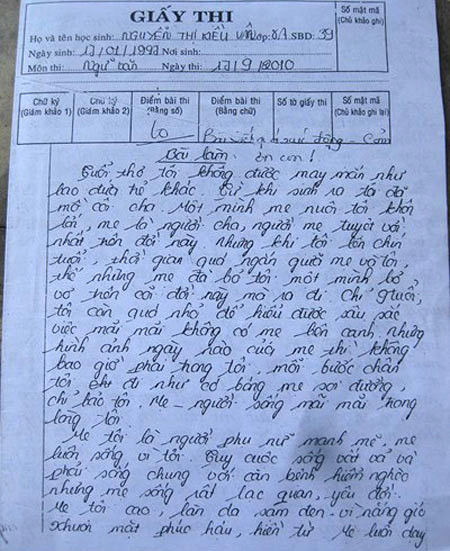 GIẤY THI
Số mật mã
(Chủ khảo ghi)
Họ và tên học sinh: NGUYỄN THỊ KIỀU VÂN Lớp: 8A SBD: 39
Ngày sinh: 17/01/1997 Nơi sinh:
Môn thi: Ngữ văn Ngày thi: 17/9/2010
Chữ ký
(Giám khảo 1)
Chữ ký
(Giám khảo 2)
Điểm bài thi
(Bằng số)
Điểm bài thi
(Bằng chữ)
Số tờ giấy thi
Số mật mã
(Chủ khảo ghi lại)
10 Bài viết quá xúc động - Cảm
ơn con!
Bài làm
Tuổi thơ tôi không được may mắn như
bao đứa trẻ khác. Từ khi sinh ra tôi đã
mồ côi cha. Một mình mẹ nuôn tôi khôn
lớn, mẹ là người cha, người mẹ tuyệt vời
nhất trên đời này. Nhưng khi tôi lên chín
tuổi, thời gian quá ngắn gười mẹ và tôi,
thế nhưng mẹ đã bỏ tôi một mình bơ
vơ trên cõi đời này mà ra đi. Chỉ 9 tuổi,
tôi còn quá nhỏ để hiểu được sâu sắc
việc mãi mãi không có mẹ bên cạnh, nhưng
hình ảnh ngày nào của mẹ thì không
bao giờ phai trong tôi, mỗi bước chân
tôi khi đi như có bóng mẹ soi đường,
chỉ bảo tôi. Mẹ - người sống mãi mãi trong
lòng tôi.
Mẹ tôi là người phụ nữ mạnh mẽ, mẹ
luôn sống vì tôi. Tuy cuộc sống vất vả và
phải sống chung với căn bệnh hiểm nghèo
nhưng mẹ sống rất lạc quan, yêu đời.
Mẹ tôi cao, làn da sạm đen vì nắng gió
khuôn mặt phúc hậu, hiền từ. Mẹ luôn dạy